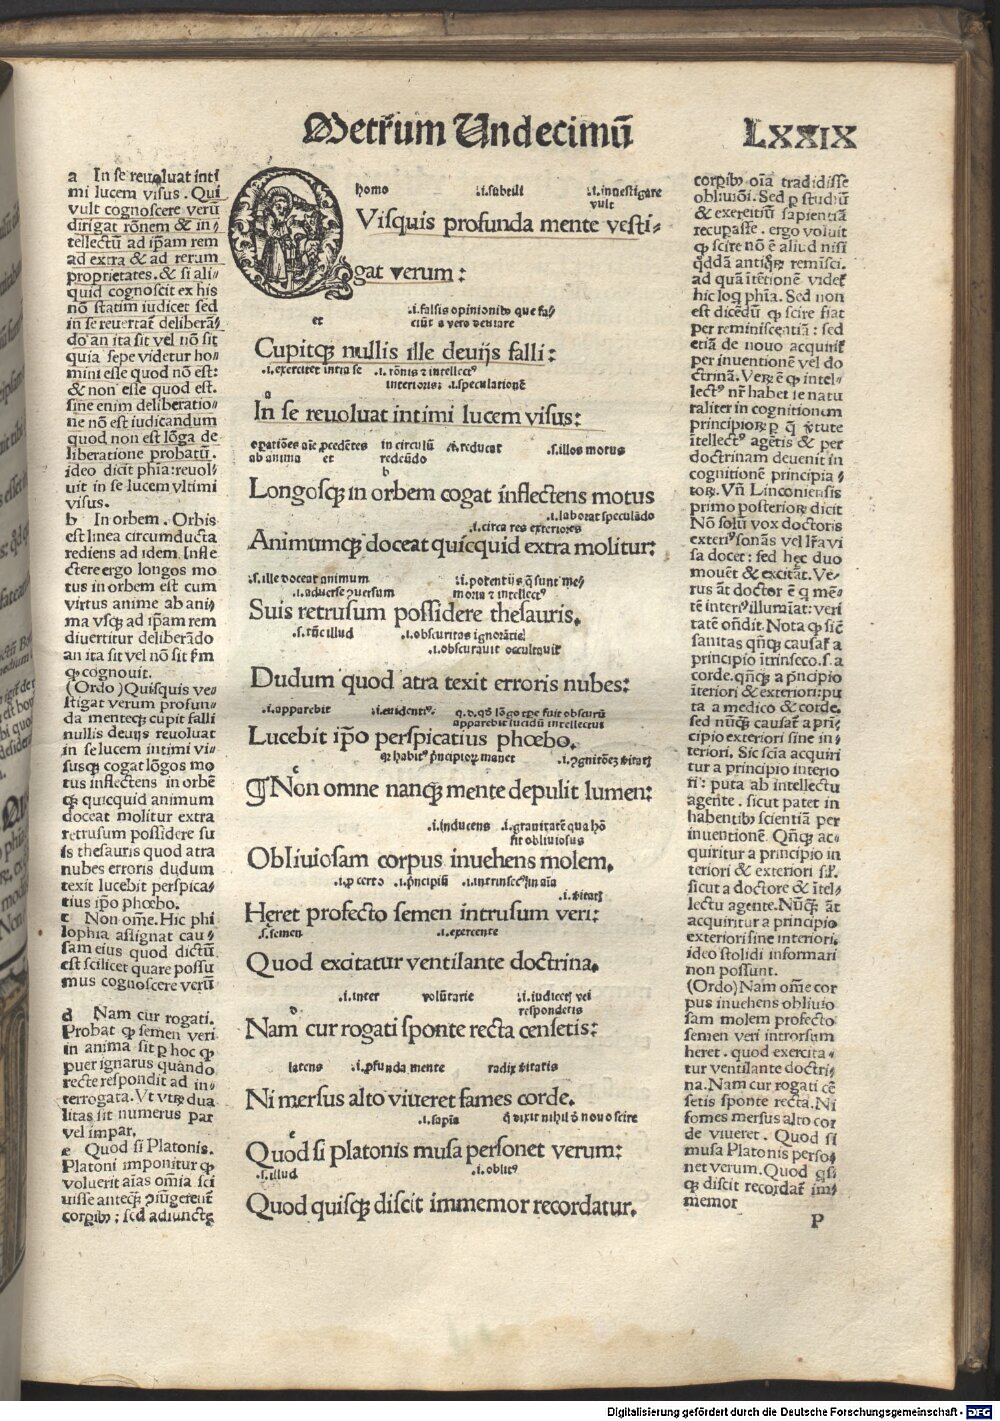 Metrum Undecimū
LXXIX
a In se reuoluat inti
mi lucem visus. Qui
vult cognoscere verū
dirigat rōnem & in/
tellectū ad ip̄am rem
ad extra & ad rerum
proprietates. & si ali/
quid cognoscit ex his
nō statim iudicet sed
in se reuertat̄ deliberā/
do an ita sit vel nō sit
quia sepe videtur ho/
mini esse quod nō est:
& non esse quod est.
sine enim deliberatio/
ne nō est iudicandum
quod non est lōga de
liberatione probatū.
ideo dicit phīa: reuol/
uit in se lucem vltimi
visus.
b In orbem. Orbis
est linea circumducta
rediens ad idem. Infle
ctere ergo longos mo
tus in orbem est cum
virtus anime ab ani/
ma vsq̄ ad ip̄am rem
diuertitur deliberādo
an ita sit vel nō sit
cognouit.
(Ordo) Quisquis ve/
stigat verum profun/
da menteq̄ cupit falli
nullis deuijs reuoluat
in se lucem intimi vi/
susq̄ cogat lōgos mo
tus inflectens in orbē
quicquid animum
doceat molitur extra
retrusum possidere su
is thesauris quod atra
nubes erroris dudum
texit lucebit perspica/
tius ip̄o phœbo.
c Non om̄e. Hic phi
losophia assignat cau/
sam eius quod dictū
est scilicet quare possu
mus cognoscere verū
d Nam cur rogati.
Probat semen veri
in anima sit hoc
puer ignarus quando
recte respondit ad in/
terrogata. Vt dua
litas sit numerus par
vel impar.
e Quod si Platonis.
Platoni imponitur
voluerit aīas om̄ia sci
uisse anteq̄
; sed adiuncte
homo .i. subtili .i. inuestigare
vult
QVisquis profunda mente vesti/
gat verum:
.i. falsis opinionib9 que
et a vero deuiare
Cupitq̄ nullis ille deuijs falli:
.i. exercitet intra se .i. rōnis
interioris: .i. speculationē
a
In se reuoluat intimi lucem visus:
in circulū reducat .s. illos motus
ab anima et redeūdo
b
Longosq̄ in orbem cogat inflectens motus
.i. laborat speculādo
.i. circa res exteriores
Animumq̄ doceat quicquid extra molitur:
.s. ille doceat animum .i. potentijs q̄ sunt me/
Suis retrusum possidere thesauris.
illud .i. obscuritas
.i. obscurauit
Dudum quod atra texit erroris nubes:
.i. apparebit
apparebit lucidū intellectus
Lucebit ip̄o perspicatius phœbo.
manet
c
¶ Non omne nanq̄ mente depulit lumen:
.i. inducens .i. grauitatē qua hō
fit obliuiosus
Obliuiosam corpus inuehens molem.
certo
Heret profecto semen intrusum veri:
.s. semen .i. exercente
Quod excitatur ventilante doctrina.
.i. inter volūtarie .i. iudicetis vel
d respondetis
Nam cur rogati sponte recta censetis:
latens mente radix
Ni mersus alto viueret fames corde.
e
Quod si platonis musa personet verum:
.s. illud
Quod quisq̄ discit immemor recordatur.
oīa tradidisse
obliuiōi. Sed studiū
& exercitiū sapientiā
recupasse. ergo voluit
scire nō ē aliud nisi
qddā remisci.
ad quā itētionē
hic loq̄ phīa. Sed non
est dicēdū scire fiat
per reminiscentiā: sed
etiā de nouo
per inuentionē vel do
ctrinā. intel/
habet ie natu
raliter in cognitionem
tute
agētis & per
doctrinam deuenit in
cognitionē principia
Vn̄ Linconiensis
primo dicit
Nō solū vox doctoris
sonās vel vi
sa docet: sed hęc duo
mouēt & excitāt. Ve/
rus āt doctor ē q̄ mē/
tē illumīat: veri
tatē on̄dit. Nota
sanitas a
principio ītrinseco .s. a
corde. a prīcipio
īteriori & exteriori: pu
ta a medico & corde.
sed a pri/
cipio exteriori sine in/
teriori. Sic scīa acquiri
tur a principio interio
ri: puta ab intellectu
agente. sicut patet in
habentib9 scientiā per
inuentionē. ac/
quiritur a principio in
teriori & exteriori
sicut a doctore & ītel/
lectu agente. Nūq̄ āt
acquiritur a principio
exteriori sine interiori.
ideo stolidi informari
non possunt.
(Ordo) Nam om̄e cor
pus inuehens obliuio
sam molem profecto
semen veri introrsum
heret. quod exercita/
tur ventilante doctri/
na. Nam cur rogati cē
setis sponte recta. Ni
fomes mersus alto cor
de viueret. Quod si
musa Platonis perso/
net verum. Quod
discit recordat̄ im/
memor
P
Digitalisierung gefördert durch die Deutsche Forschungsgemeinschaft - DFG